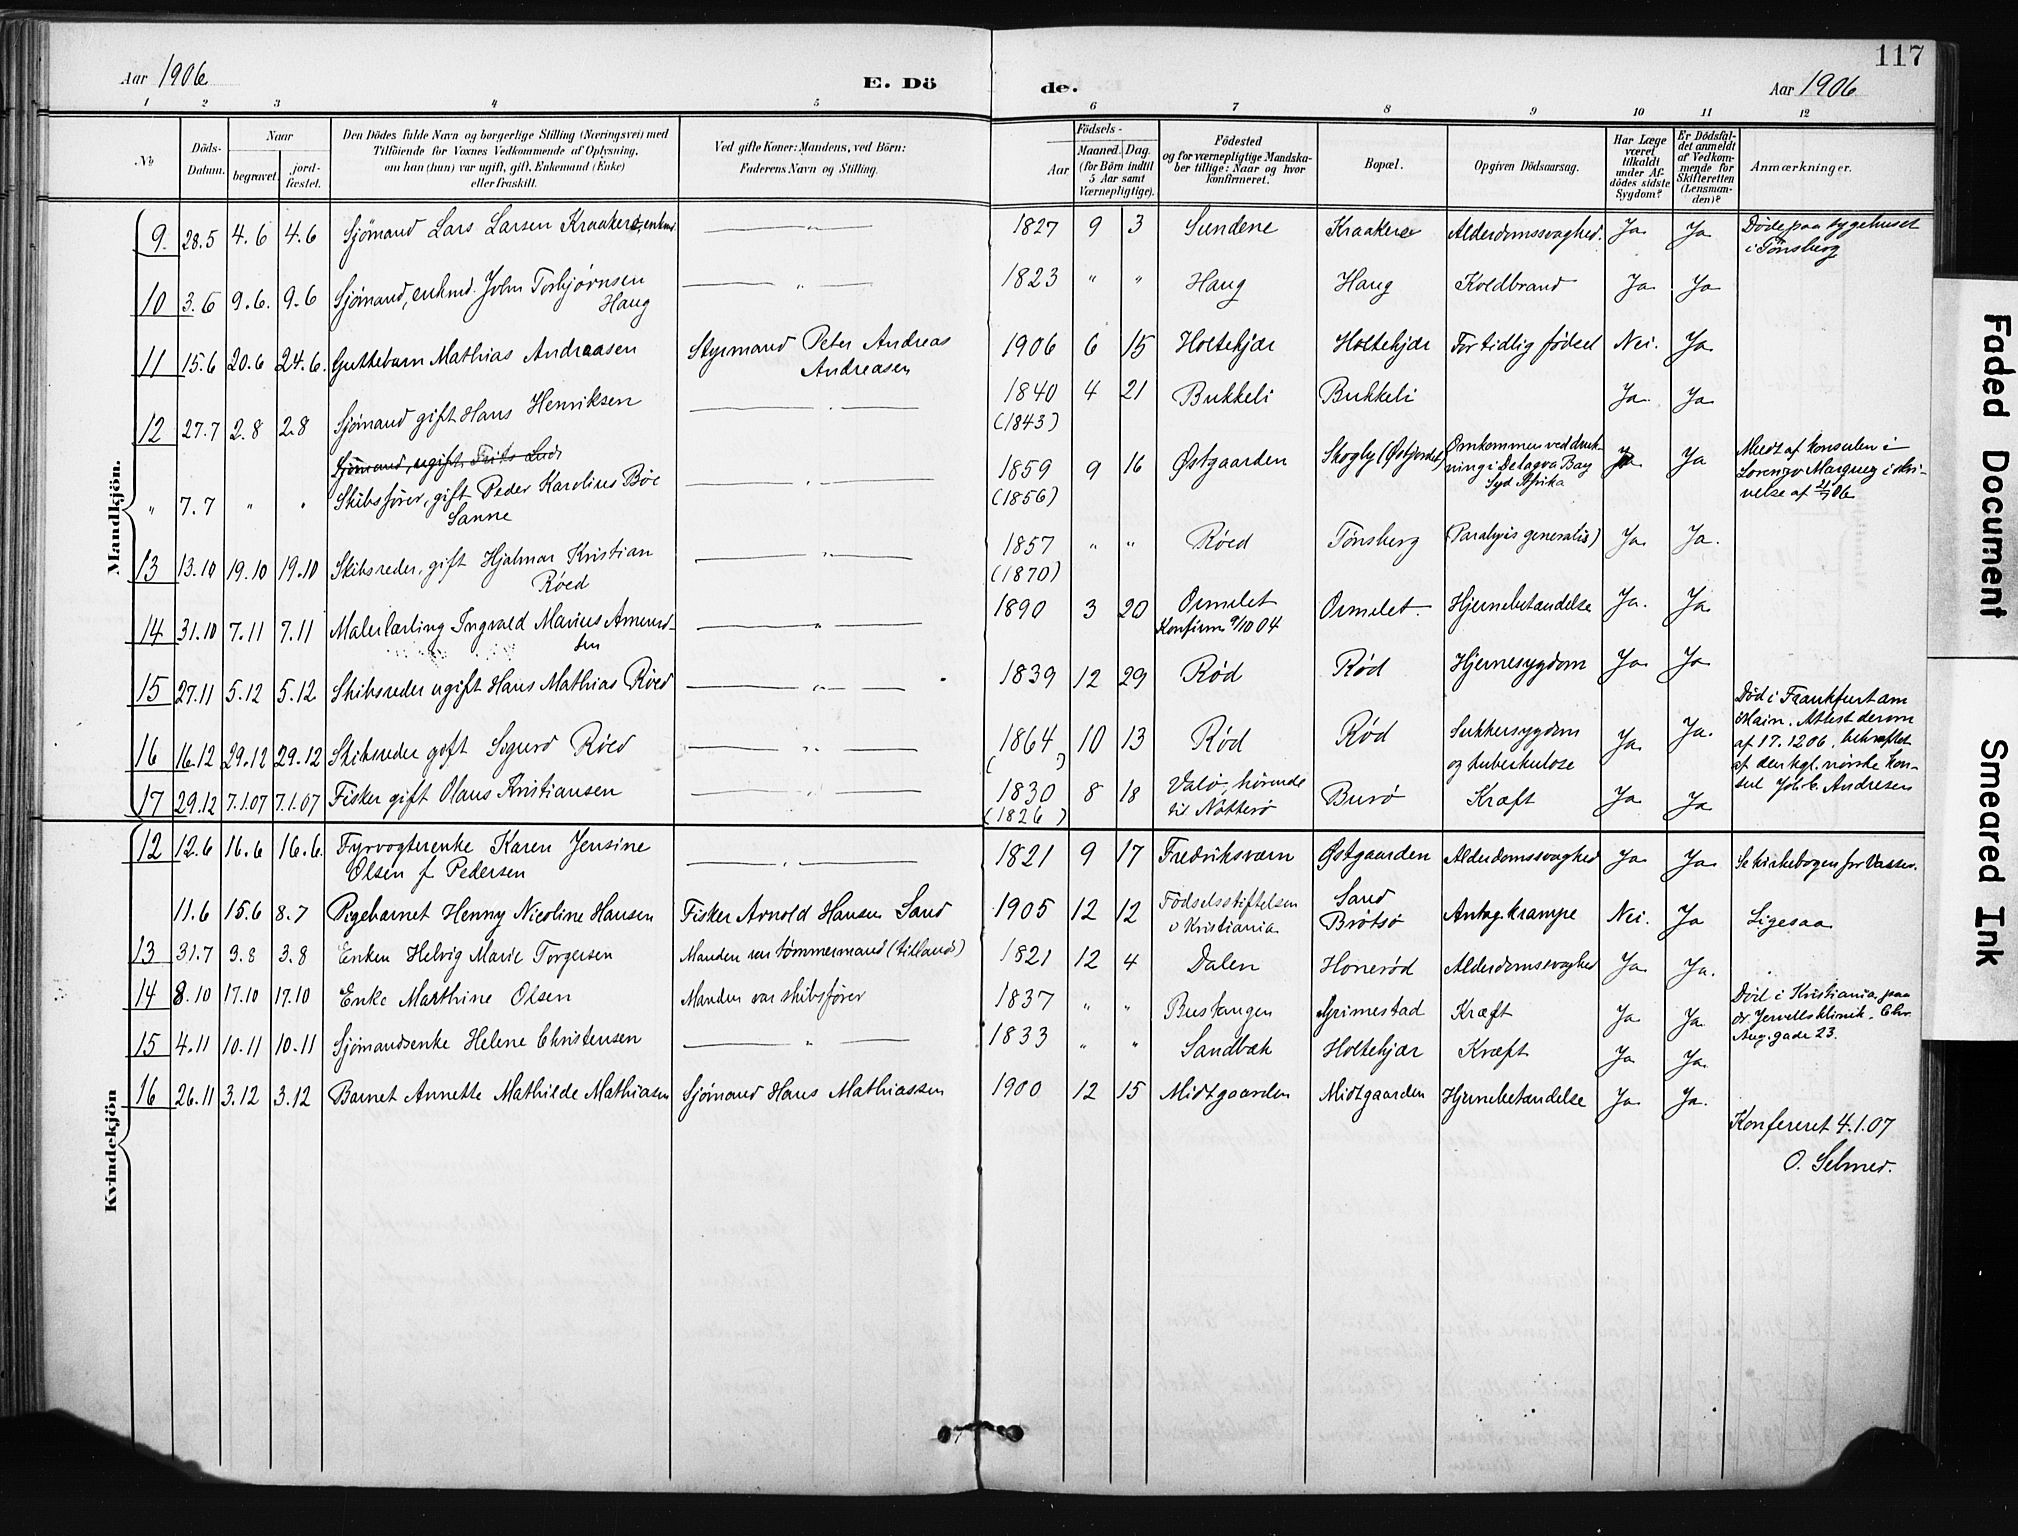 117
Aar 1906
E. Dö
de.
Aar 1906
1 2 3 4 5 6 7 8 9 10 11 12
No
Döds-Datum.
Naar
begravet.
jord-fæstet.
Den Dödes fulde Navn og borgerlige Stilling (Næringsvei) med
Tilföiende for Voxnes Vedkommende af Oplysning,
om han (hun) var ugift, gift, Enkemand (Enke)
eller fraskilt.
Ved gifte Koner: Mandens, ved Börn:
Faderens Navn og Stilling.
Födsels-
Aar
Maaned. Dag.
(for Börn indtil
5 Aar samt
Værnepligtige).
Födested
og for værnepligtige Mandska-
ber tillige: Naar og hvor
konfirmeret.
Bopæl.
Opgiven Dödsaarsag.
Har Læge
været
tilkaldt
under Af-
dödes sidste
Sygdom?
Er Dödsfal-
det anmeldt
af Vedkom-
mende for
Skifteretten
(Lensman-
den)?
Anmærkninger.
Mandkjön.
9. 28.5 4.6 4.6 Sjömand Lars Larsen Kraakere, enkmd. — " — 1827 9 3 Sundene Kraakere Alderdomssvaghed. Ja Ja Döde paa sygehuset
i Tönsberg
10 3.6 9.6. 9.6 Sjömand, enkmd. John Torbjørnsen
Haug — " — 1823 " " Haug Haug Koldbrand Ja Ja
11 15.6 20.6 24.6. Guttebarn Mathias Andreasen Styrmand Peter Andreas
Andreasen 1906 6 15 Holtekjær Holtekjær For tidlig fødsel Nei. Ja
12 27.7 2.8 2.8 Sjömand gift Hans Henriksen — " — 1840 4 21 Bukkeli Bukkeli Ja Ja
(1843)
Sjömand, ugift, Frits
" 7.7 " " Skibsfører, gift Peder Karolius Bøe
Sanne — " — 1859 9 16 Østgaarden Skogly (Østjordet) Omkommen ved druk-
ning i Delagoa Bay
Syd Afrika Ja Ja Meldt af konsulen i
Lorenzo Marquez i skri-
velse af 21/7 06
(1856)
13 13.10 19.10 19.10 Skibsreder, gift Hjalmar Kristian
Röed — " — 1857 " " Røed Tønsberg (Paralysis generalis) Ja Ja.
(1870)
14 31.10 7.11 7.11 Malerlærling Ingvald Marius Amund-
sen — " — 1890 3 20 Ormelet
Konfirm 9/10 04 Ormelet Hjernebetændelse Ja. Ja
15 27.11 5.12 5.12 Skibsreder ugift Hans Mathias Röed — " — 1839 12 29 Rød Rød Hjernesygdom Ja Ja
16 16.12 29.12 29.12 Skibsreder gift Sigurd Röed — " — 1864 10 13 Rød Rød Sukkersygdom
og tuberkulose Ja Ja. Död i Frankfurt am
Main. Attest derom
af 17.12 06, bekræftet
af den kgl. norske kon-
sul Joh. C. Andresen
( )
17 29.12 7.1.07 7.1.07 Fisker gift Olaus Kristiansen — " — 1830 8 18 Valø, hørende
til Nøtterø Burø Kræft Ja Ja
(1826)
Kvindekjön
12 12.6 16.6 16.6. Fyrvogterenke Karen Jensine
Olsen f. Pedersen — " — 1821 9 17 Fredriksværn Østgaarden Alderdomssvaghed Ja Ja Se kirkebogen for Vasser.
11.6 15.6 8.7 Pigebarnet Henny Nicoline Hansen Fisker Arnold Hansen Sand 1905 12 12 Fødselsstiftelsen
i Kristiania Sand
Brøtsø Antag. krampe Nei. Ja Ligesaa
13 31.7 3.8 3.8 Enken Helvig Marie Torgersen Manden var tømmermand (tillands) 1821 12 4 Dalen Honerød Alderdomssvaghed Ja Ja.
14 8.10 17.10 17.10 Enke Marthine Olsen Manden var skibsfører 1837 " " Bustangen Grimestad Kræft Ja Ja Död i Kristiania paa
dr. Jervells klinik. Chr.
Aug. gade 23.
15 4.11 10.11 10.11 Sjømandsenke Helene Christensen — " — 1833 " " Sandbæk Holtekjær Kræft Ja Ja.
16 26.11 3.12 3.12 Barnet Annette Mathilde Mathiasen Sjømand Hans Mathiassen 1900 12 15 Midtgaarden Midtgaarden Hjernebetændelse Ja Ja.
Konfereret 4.1.07
O. Selmer.
Faded Document
Smeared Ink